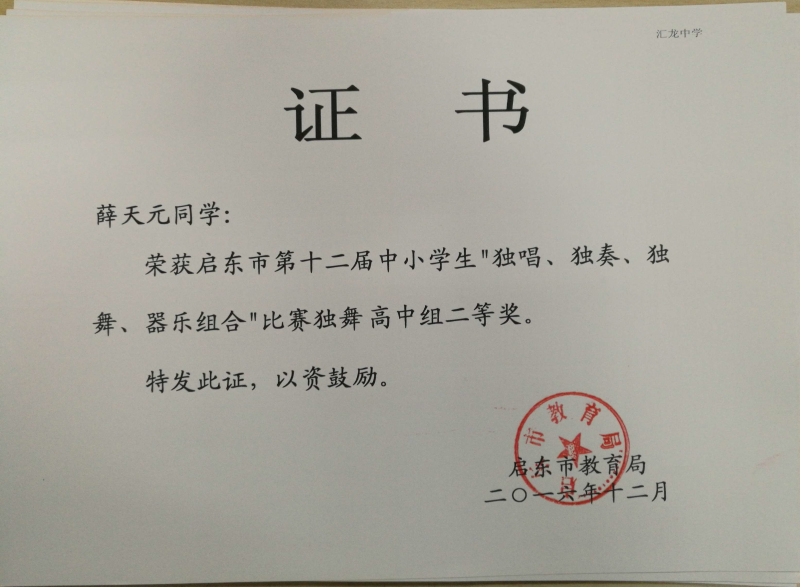 汇龙中学
证 书
薛天元同学:
荣获启东市第十二届中小学生"独唱、独奏、独
舞、器乐组合"比赛独舞高中组二等奖。
特发此证，以资鼓励。
市教育局
启东市教育局
二〇一六年十二月